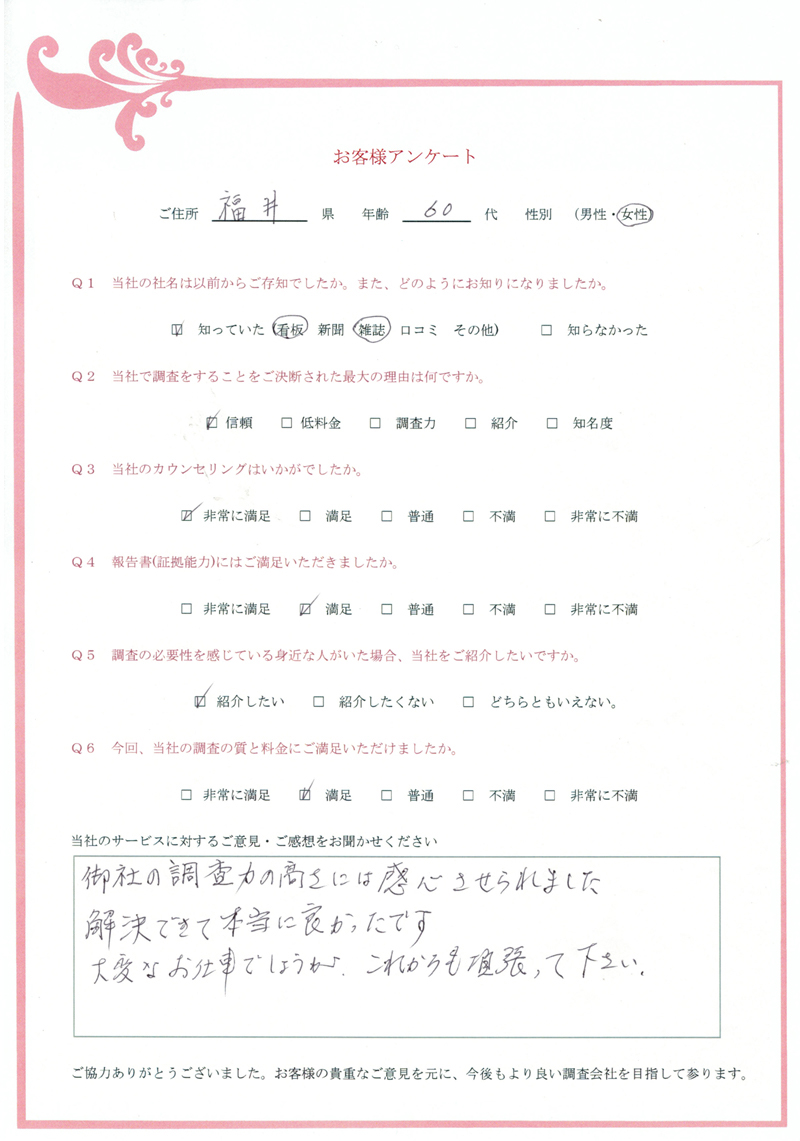 お客様アンケート
ご住所 福井 県 年齢 60 代 性別 (男性・女性)
Q1 当社の社名は以前からご存知でしたか。また、どのようにお知りになりましたか。
☑ 知っていた (看板 新聞 雑誌 口コミ その他) □ 知らなかった
Q2 当社で調査をすることをご決断された最大の理由は何ですか。
☑ 信頼 □ 低料金 □ 調査力 □ 紹介 □ 知名度
Q3 当社のカウンセリングはいかがでしたか。
☑ 非常に満足 □ 満足 □ 普通 □ 不満 □ 非常に不満
Q4 報告書(証拠能力)にはご満足いただきましたか。
□ 非常に満足 ☑ 満足 □ 普通 □ 不満 □ 非常に不満
Q5 調査の必要性を感じている身近な人がいた場合、当社をご紹介したいですか。
☑ 紹介したい □ 紹介したくない □ どちらともいえない。
Q6 今回、当社の調査の質と料金にご満足いただけましたか。
□ 非常に満足 ☑ 満足 □ 普通 □ 不満 □ 非常に不満
当社のサービスに対するご意見・ご感想をお聞かせください
御社の調査力の高さには感心させられました
解決できて本当に良かったです
大変なお仕事でしょうが、これからも頑張って下さい。
ご協力ありがとうございました。お客様の貴重なご意見を元に、今後もより良い調査会社を目指して参ります。